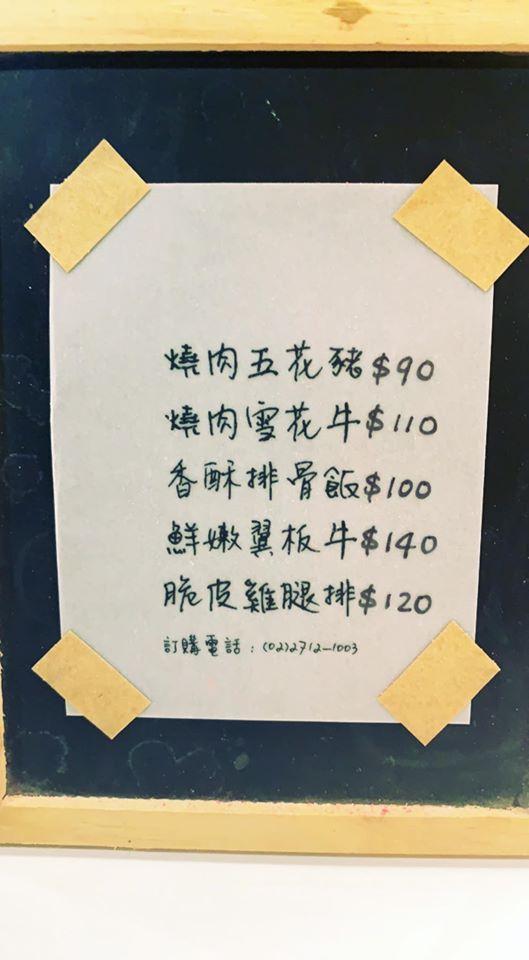 燒肉五花豬$90
燒肉雪花牛$110
香酥排骨飯$100
鮮嫩翼板牛$140
脆皮雞腿排$120
訂購電話：(02)2712-1003